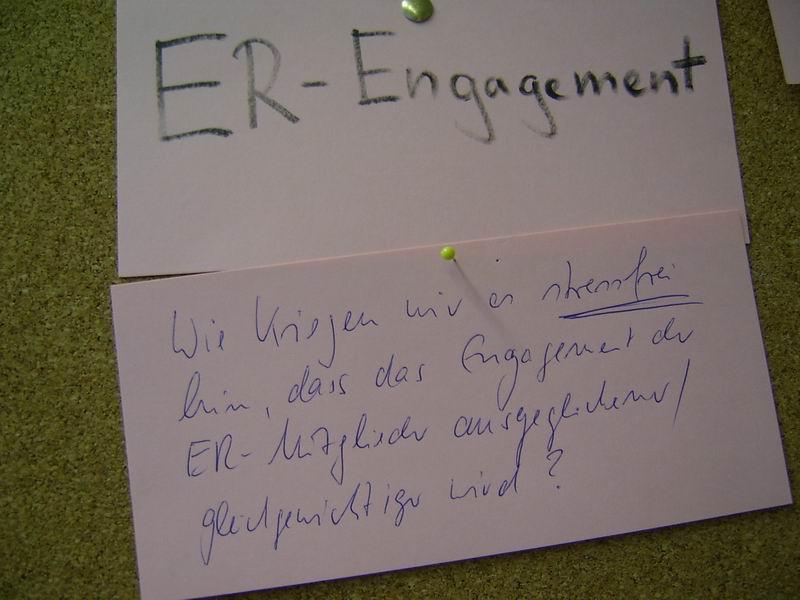 ER-Engagement
Wie kriegen wir es stressfrei
hin, dass das Engagement der
ER-Mitglieder ausgeglichener/
gleichgewichtiger wird?